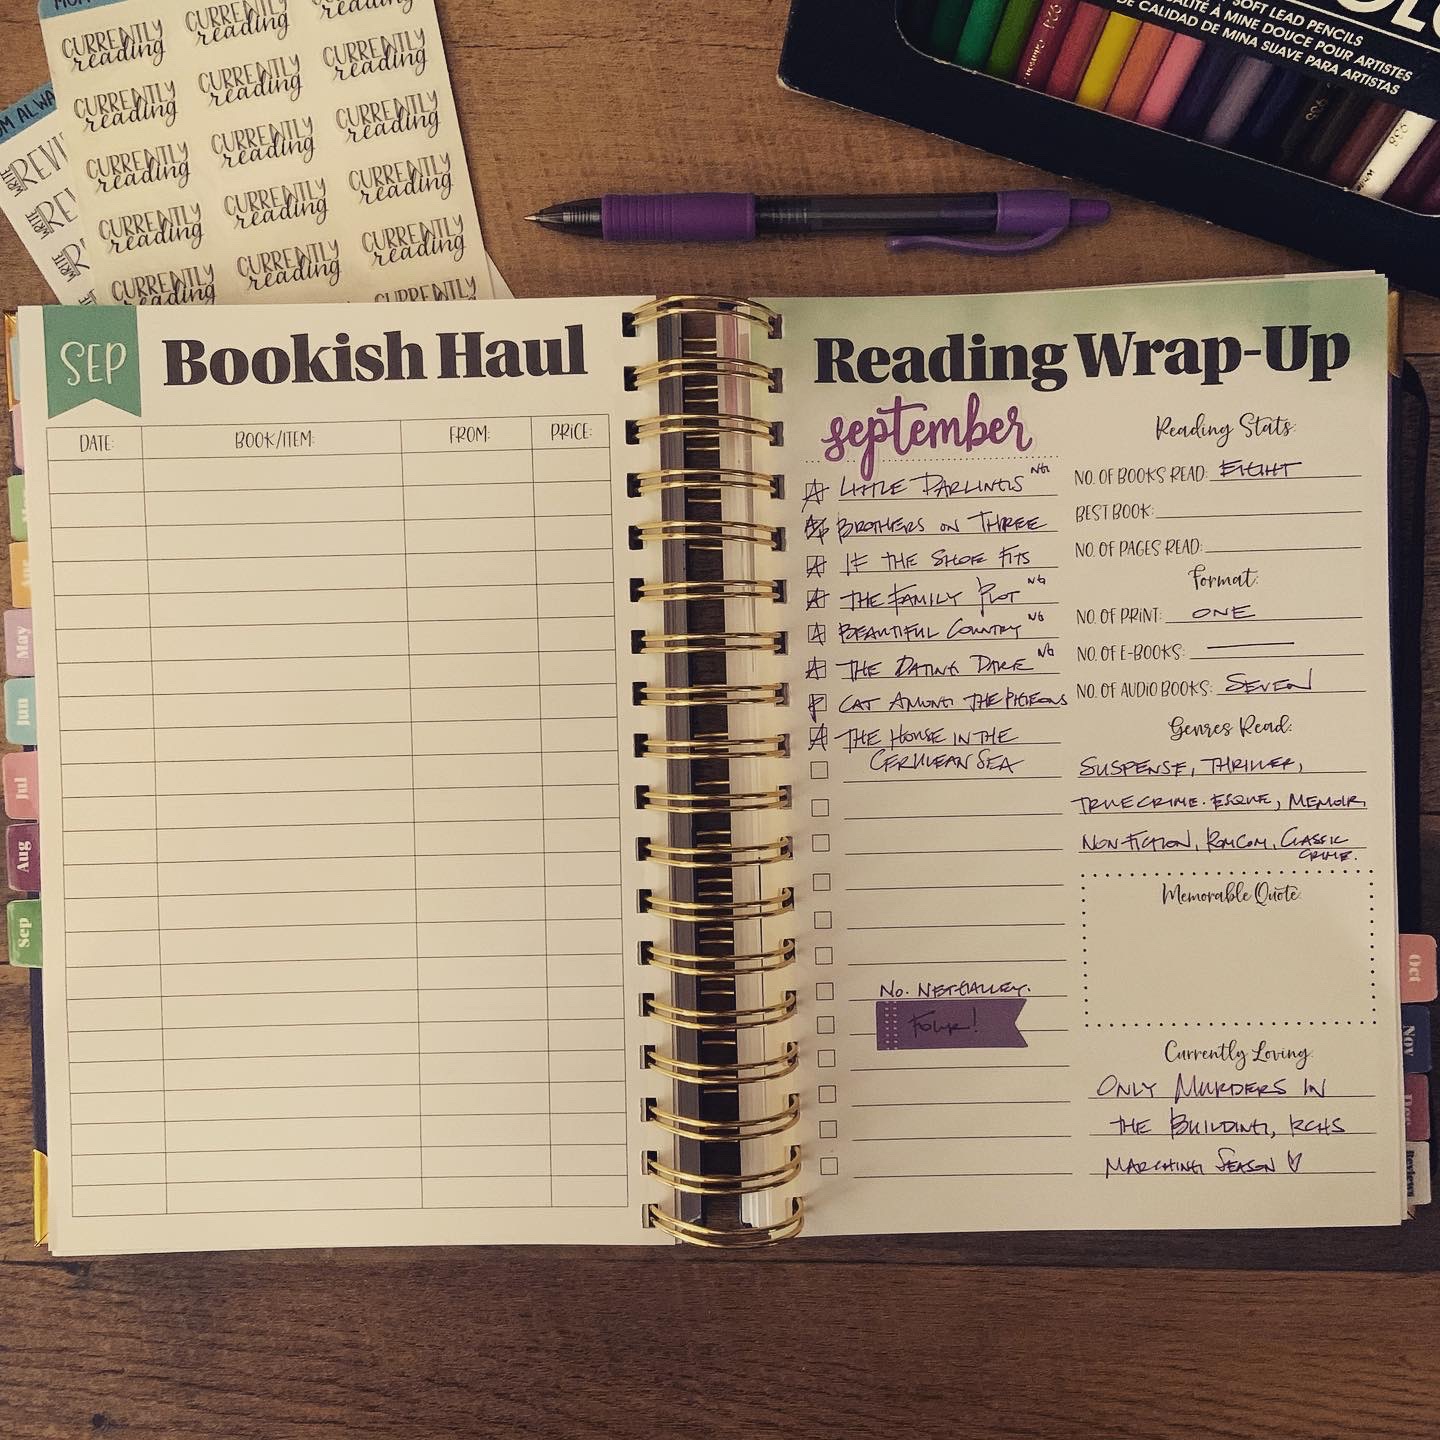 MOM
CURRENTLY reading CURRENTLY reading CURRENTLY reading
CURRENTLY reading CURRENTLY reading CURRENTLY reading
CURRENTLY reading CURRENTLY reading CURRENTLY reading
CURRENTLY reading CURRENTLY reading CURRENTLY reading
CURRENTLY reading CURRENTLY reading CURRENTLY reading
CURRENTLY reading CURRENTLY reading CURRENTLY
WRITE REVI
WRITE
WRITE
SOFT LEAD PENCILS
QUALITÉ À MINE DOUCE POUR ARTISTES
DE CALIDAD DE MINA SUAVE PARA ARTISTAS
924
935
938
SEP
Bookish Haul
DATE: BOOK/ITEM: FROM: PRICE:
May
Jun
Jul
Aug
Sep
Reading Wrap-Up
september
A LITTLE DARLINGS NG
BROTHERS ON THREE
A IF THE SHOE FITS
A THE FAMILY PLOT NG
A BEAUTIFUL COUNTRY NG
A THE DATING DARE NG
P CAT AMONG THE PIGEONS
A THE HOUSE IN THE
CERULEAN SEA
No. NETGALLEY.
Four!
Reading Stats:
NO. OF BOOKS READ: EIGHT
BEST BOOK:
NO. OF PAGES READ:
Format:
NO. OF PRINT: ONE
NO. OF E-BOOKS:
NO. OF AUDIO BOOKS: SEVEN
Genres Read:
SUSPENSE, THRILLER,
TRUE CRIME-ESQUE, MEMOIR,
NON-FICTION, ROMCOM, CLASSIC
CRIME.
Memorable Quote:
Currently Loving:
ONLY MURDERS IN
THE BUILDING, RCHS
MARCHING SEASON
Oct
Nov
Dec
Reviews